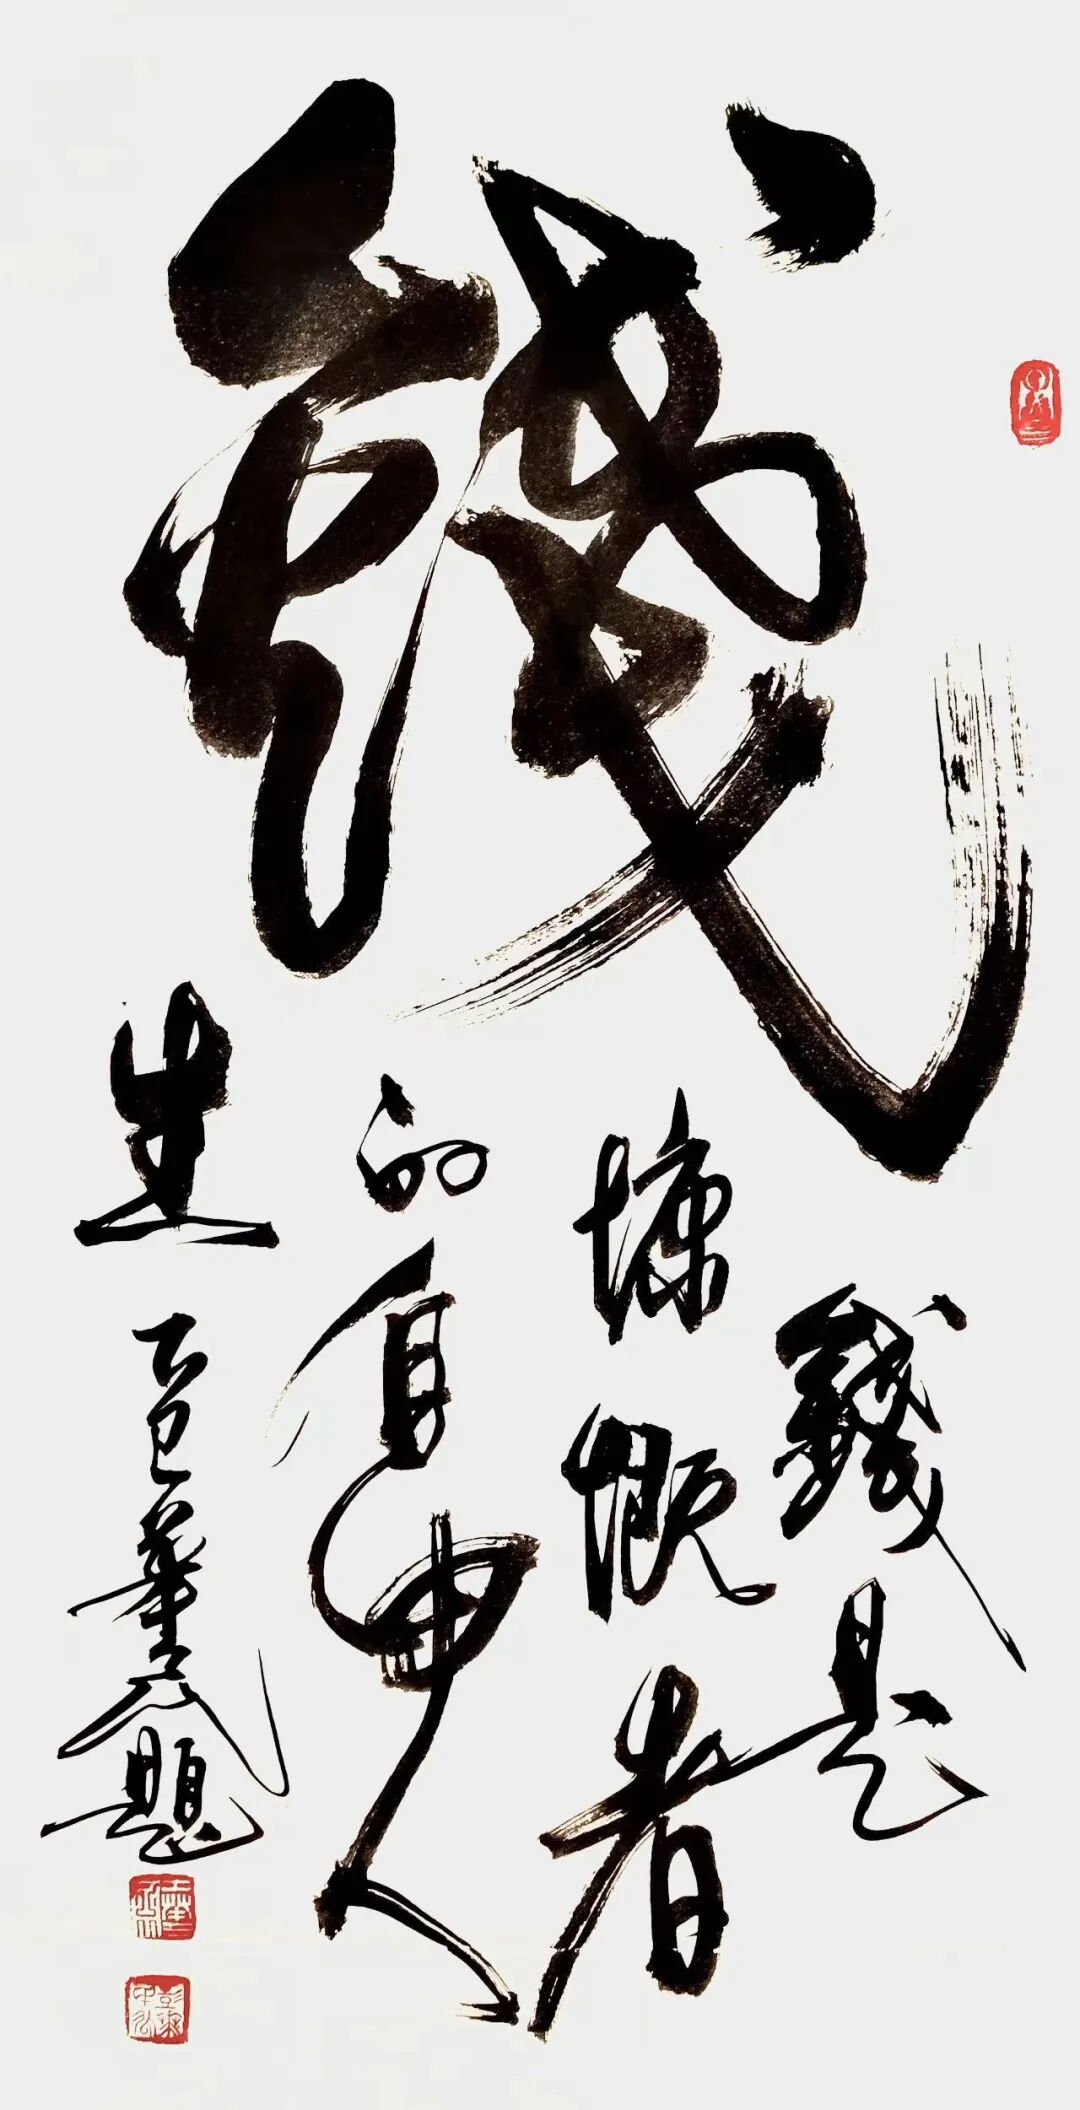 錢
錢是
慷慨者
的自由人
生
乙巳華題